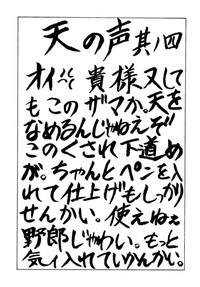 天の声其ノ四
オイ〃 貴様又して
もこのザマか、天を
なめるんじゃねえぞ
このくされ下道め
が。ちゃんとペンを入
れて仕上げもしっかり
せんかい。使えねェ
野郎じゃわい。もっと
気ィ入れていかんかい。